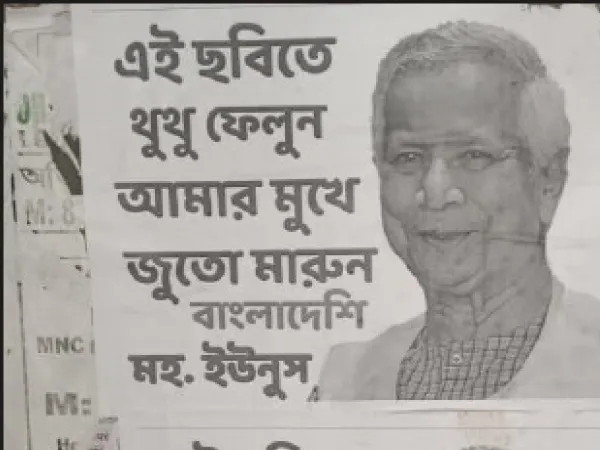 এই ছবিতে
থুথু ফেলুন
আমার মুখে
জুতো মারুন
বাংলাদেশি
মহ. ইউনুস
M: 8
MNC
M: